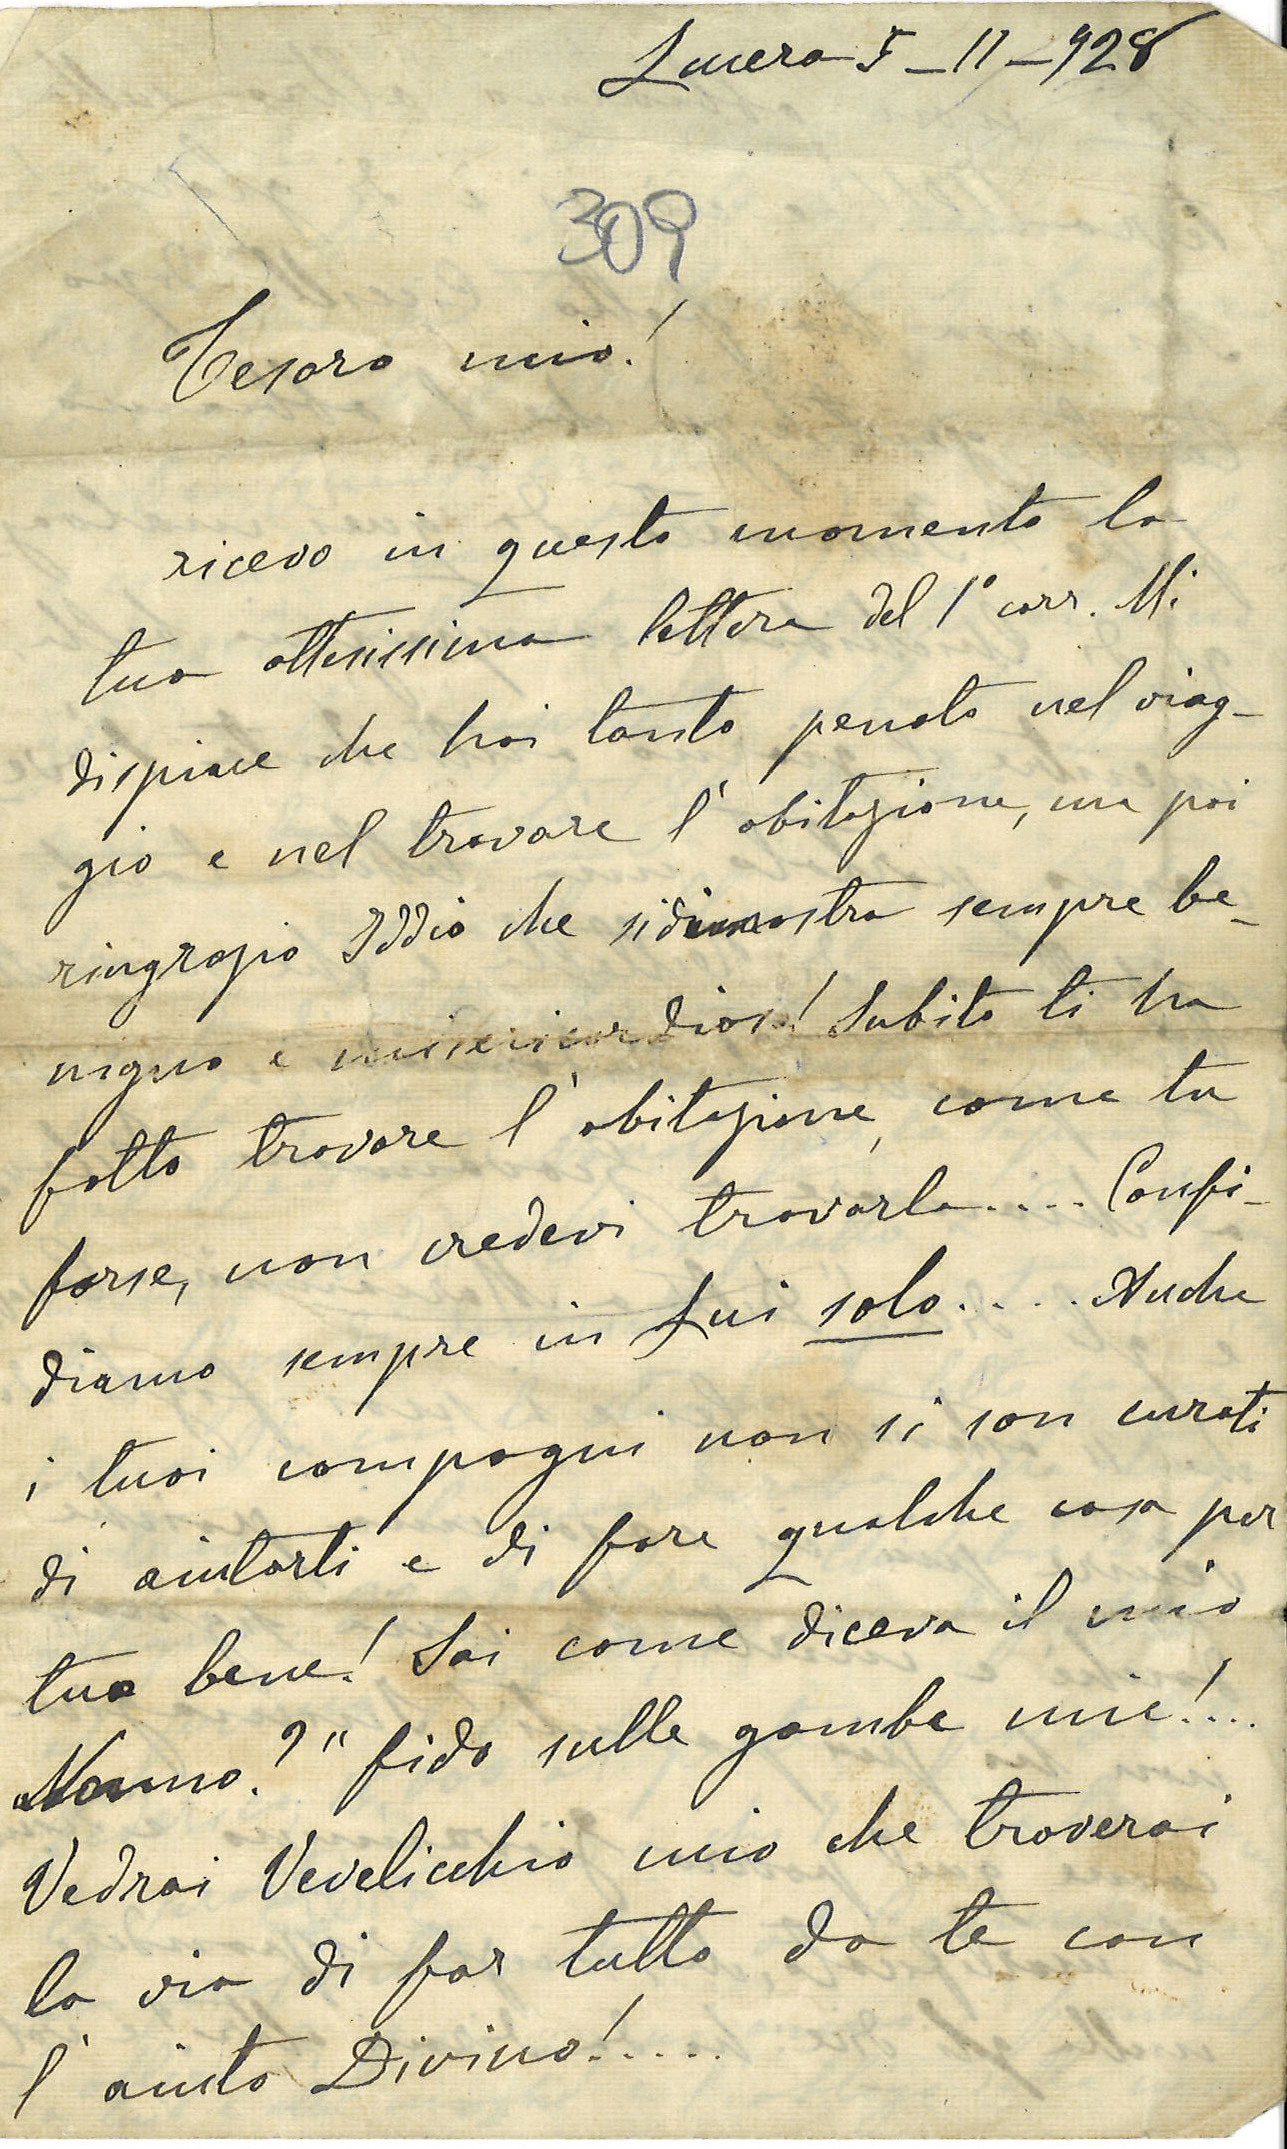 Lucera 5-11-928
309
Tesoro mio!
ricevo in questo momento la
tua attesissima lettera del 1° corr. Mi
dispiace che hai tanto penato nel viag-
gio e nel trovare l'abitazione, ma poi
ringrazio Iddio che si dimostra sempre be-
nigno e misericordioso! Subito ti ha
fatto trovare l'abitazione, come tu
forse, non credevi trovarla.... Confi-
diamo sempre in Lui solo..... Anche
i tuoi compagni non si son curati
di aiutarti e di fare qualche cosa per
tuo bene! Sai come diceva il mio
Nonno?" fido sulle gambe mie!....
Vedrai Vevelicchio mio che troverai
la via di far tutto da te con
l'aiuto Divino!.....